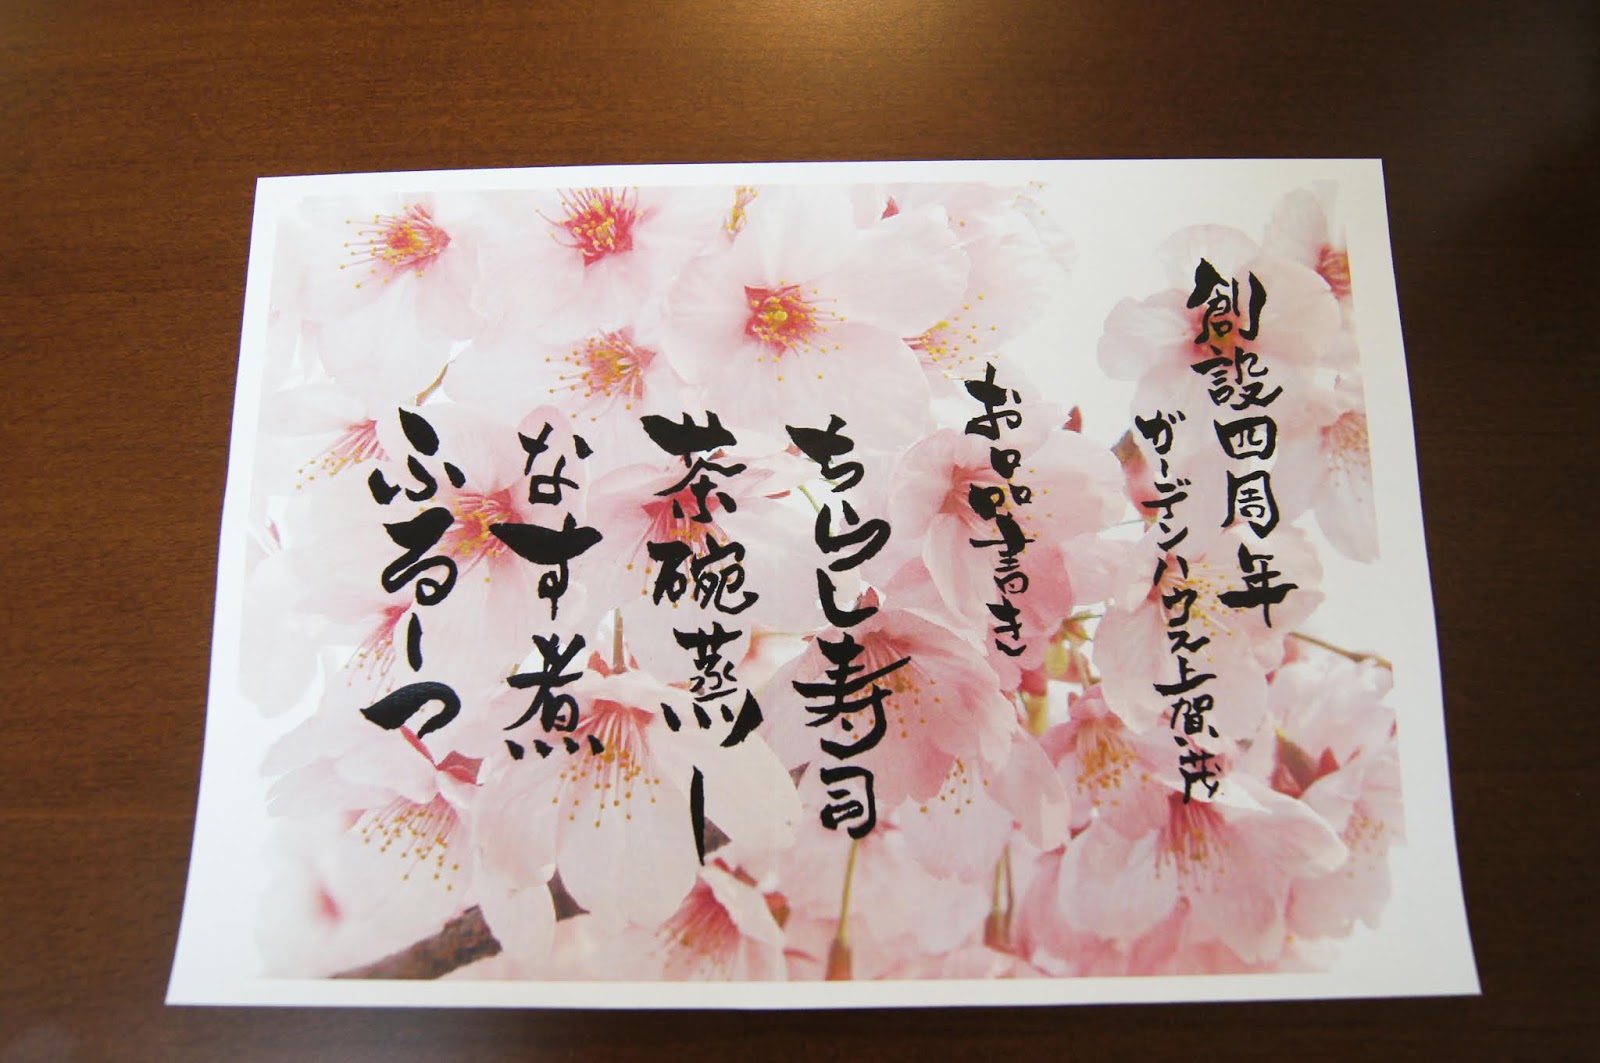 創設四周年
ガーデンハウス上賀茂
お品書き
ちらし寿司
茶碗蒸し
なす煮
ふるーつ